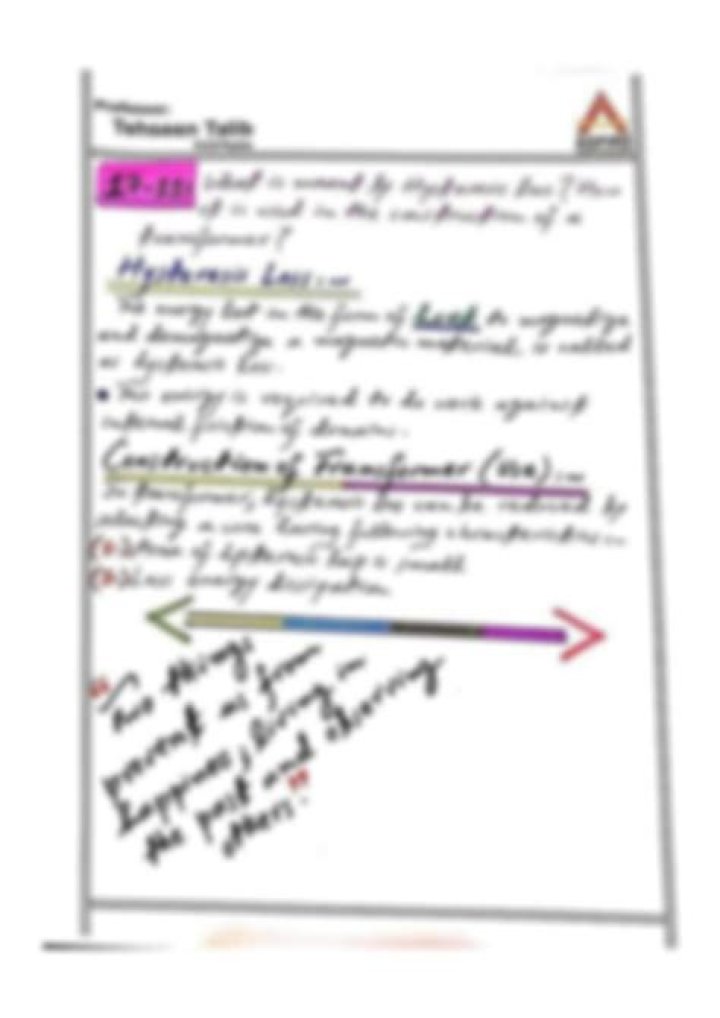 Professor:
Tehseen Talib
17.11: What is meant by Hysteresis loss? How
it is used in the construction of a
transformer?
Hysteresis Loss:-
The energy lost in the form of heat to magnetize
and demagnetize a magnetic material, is called
as hysteresis loss.
• The energy is required to do work against
internal friction of domains.
Construction of Transformer (Use):-
In transformer, hysteresis loss can be reduced by
selecting a core having following characteristics:-
Area of hysteresis loop is small
Less energy dissipation
"Two things
prevent us from
happiness; living in
the past and observing
others."